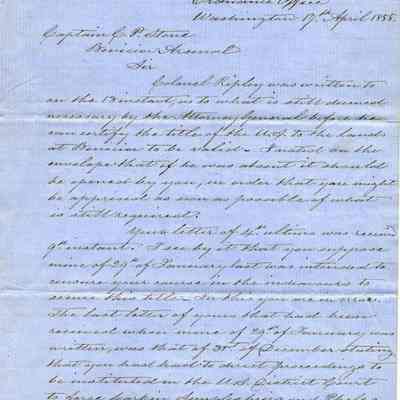 Ordnance Office
Washington 17th April 1855.
Captain C. P. Stone
Benicia Arsenal
Sir
Colonel Ripley was written to
on the 13 instant, as to what is still deemed
necessary by the Attorney General before he
can certify the title of the U.S. to the lands
at Benicia to be valid. I noted on the
envelope that if he was absent it should
be opened by you, in order that you might
be apprised as soon as possible of what
is still required.
Your letter of 4th ultimo was receiv'd
9th instant. I see by it that you suppose
mine of 29th of January last was intended to
censure your course in the endeavors to
secure this title. In this you are in error.
The last letter of yours that had been
received when mine of 29th of January was
written, was that of 31st of December stating
that you had had to direct proceedings to
be instituted in the U.S. District Court
to